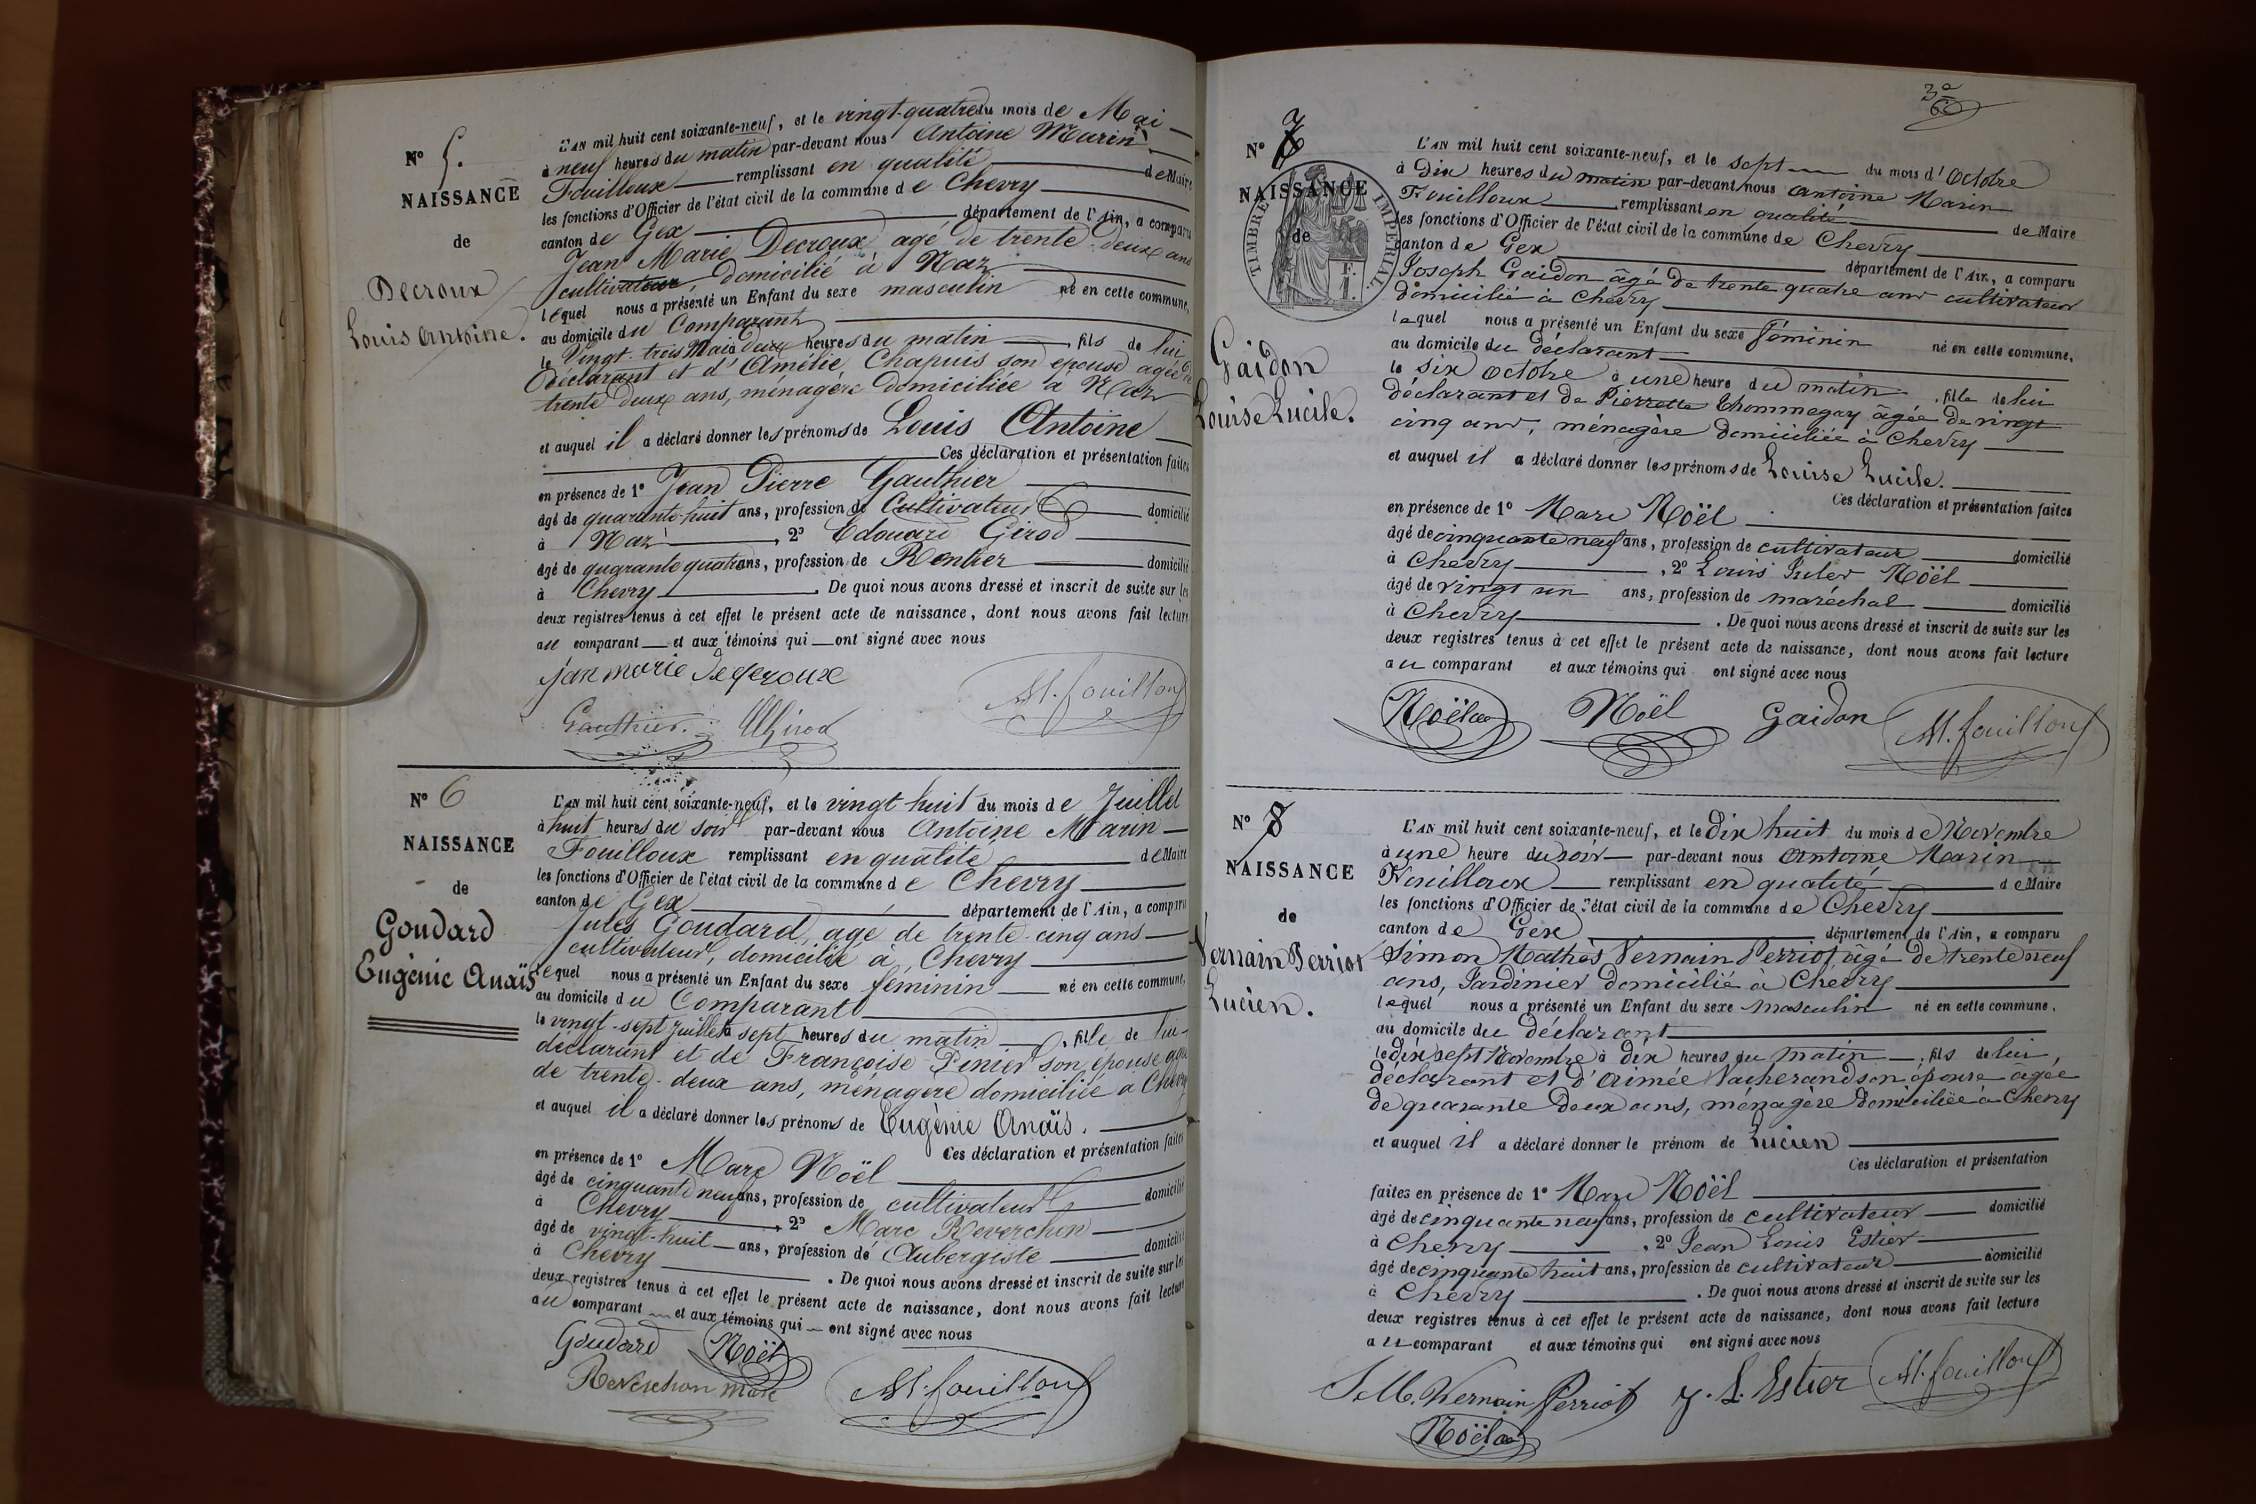 N° 5.
NAISSANCE
de
Decroux
Louis Antoine.
L'AN mil huit cent soixante-neuf, et le vingt-quatre du mois de Mai
à neuf heures du matin par-devant nous Antoine Marin
Fouilloux remplissant en qualité de Maire
les fonctions d'Officier de l'état civil de la commune de Chevry
canton de Gex département de l'Ain, a comparu
Jean Marie Decroux agé de trente deux ans
cultivateur, domicilié à Naz
lequel nous a présenté un Enfant du sexe masculin né en cette commune,
au domicile du Comparant
le Vingt-trois Mai à deux heures du matin, fils de lui
déclarant et d'Amélie Chapuis son épouse agée de
trente deux ans, ménagère domiciliée à Naz
et auquel il a déclaré donner les prénoms de Louis Antoine
Ces déclaration et présentation faites
en présence de 1° Jean Pierre Gauthier
âgé de quarante-huit ans, profession de Cultivateur domicilié
à Naz, 2° Edouard Girod
âgé de quarante quatre ans, profession de Rentier domicilié
à Chevry. De quoi nous avons dressé et inscrit de suite sur les
deux registres tenus à cet effet le présent acte de naissance, dont nous avons fait lecture
au comparant et aux témoins qui ont signé avec nous
jan marie
Gauthier. Girod M. fouilloux
N° 6
NAISSANCE
de
Goudard
Eugènie Anaïs
L'AN mil huit cent soixante-neuf, et le vingt huit du mois de Juillet
à huit heures du soir par-devant nous Antoine Marin
Fouilloux remplissant en qualité de Maire
les fonctions d'Officier de l'état civil de la commune de Chevry
canton de Gex département de l'Ain, a comparu
Jules Goudard, agé de trente-cinq ans
cultivateur, domicilié à Chevry
lequel nous a présenté un Enfant du sexe féminin né en cette commune,
au domicile du Comparant
le vingt-sept Juillet à sept heures du matin, fille de lui
déclarant et de Françoise Penier son épouse agée
de trente-deux ans, ménagère domiciliée à Chevry
et auquel il a déclaré donner les prénoms de Eugènie Anaïs.
Ces déclaration et présentation faites
en présence de 1° Marc Noël
âgé de cinquante neuf ans, profession de cultivateur domicilié
à Chevry, 2° Marc Reverchon
âgé de vingt-huit ans, profession de Aubergiste domicilié
à Chevry. De quoi nous avons dressé et inscrit de suite sur les
deux registres tenus à cet effet le présent acte de naissance, dont nous avons fait lecture
au comparant et aux témoins qui ont signé avec nous
Goudard Noël
Reverchon Marc M. fouilloux
N° 7
NAISSANCE
de
TIMBRE IMPERIAL.
Gaidon
Louise Lucile.
L'AN mil huit cent soixante-neuf, et le sept du mois d'Octobre
à Dix heures du matin par-devant nous Antoine Marin
Fouilloux remplissant en qualité de Maire
les fonctions d'Officier de l'état civil de la commune de Chevry
canton de Gex département de l'Ain, a comparu
Joseph Gaidon âgé de trente quatre ans cultivateur
domicilié à Chevry
lequel nous a présenté un Enfant du sexe féminin né en cette commune,
au domicile du déclarant
le six Octobre à une heure du matin, fille de lui
déclarant et de Pierrette Thommegay âgée de vingt
cinq ans, ménagère domiciliée à Chevry
et auquel il a déclaré donner les prénoms de Louise Lucile.
Ces déclaration et présentation faites
en présence de 1° Marc Noël
âgé de cinquante neuf ans, profession de cultivateur domicilié
à Chevry, 2° Louis Jules Noël
âgé de vingt un ans, profession de maréchal domicilié
à Chevry. De quoi nous avons dressé et inscrit de suite sur les
deux registres tenus à cet effet le présent acte de naissance, dont nous avons fait lecture
au comparant et aux témoins qui ont signé avec nous
Noël Noël Gaidon M. fouilloux
N° 8
NAISSANCE
de
Vernain Perriot
Lucien.
L'AN mil huit cent soixante-neuf, et le Dix huit du mois de Novembre
à une heure du soir par-devant nous Antoine Marin
Fouilloux remplissant en qualité de Maire
les fonctions d'Officier de l'état civil de la commune de Chevry
canton de Gex département de l'Ain, a comparu
Simon Mathès Vernain Perriot âgé de trente neuf
ans, Jardinier domicilié à Chevry
lequel nous a présenté un Enfant du sexe masculin né en cette commune.
au domicile du déclarant
le dix sept Novembre à dix heures du matin, fils de lui,
déclarant et d'Aimée Vacherand son épouse agée
de quarante deux ans, ménagère domiciliée à Chevry
et auquel il a déclaré donner le prénom de Lucien
Ces déclaration et présentation
faites en présence de 1° Marc Noël
âgé de cinquante neuf ans, profession de cultivateur domicilié
à Chevry, 2° Jean Louis Estier
âgé de cinquante huit ans, profession de cultivateur domicilié
à Chevry. De quoi nous avons dressé et inscrit de suite sur les
deux registres tenus à cet effet le présent acte de naissance, dont nous avons fait lecture
au comparant et aux témoins qui ont signé avec nous
S. M. Vernain Perriot J. L. Estier M. fouilloux
Noël